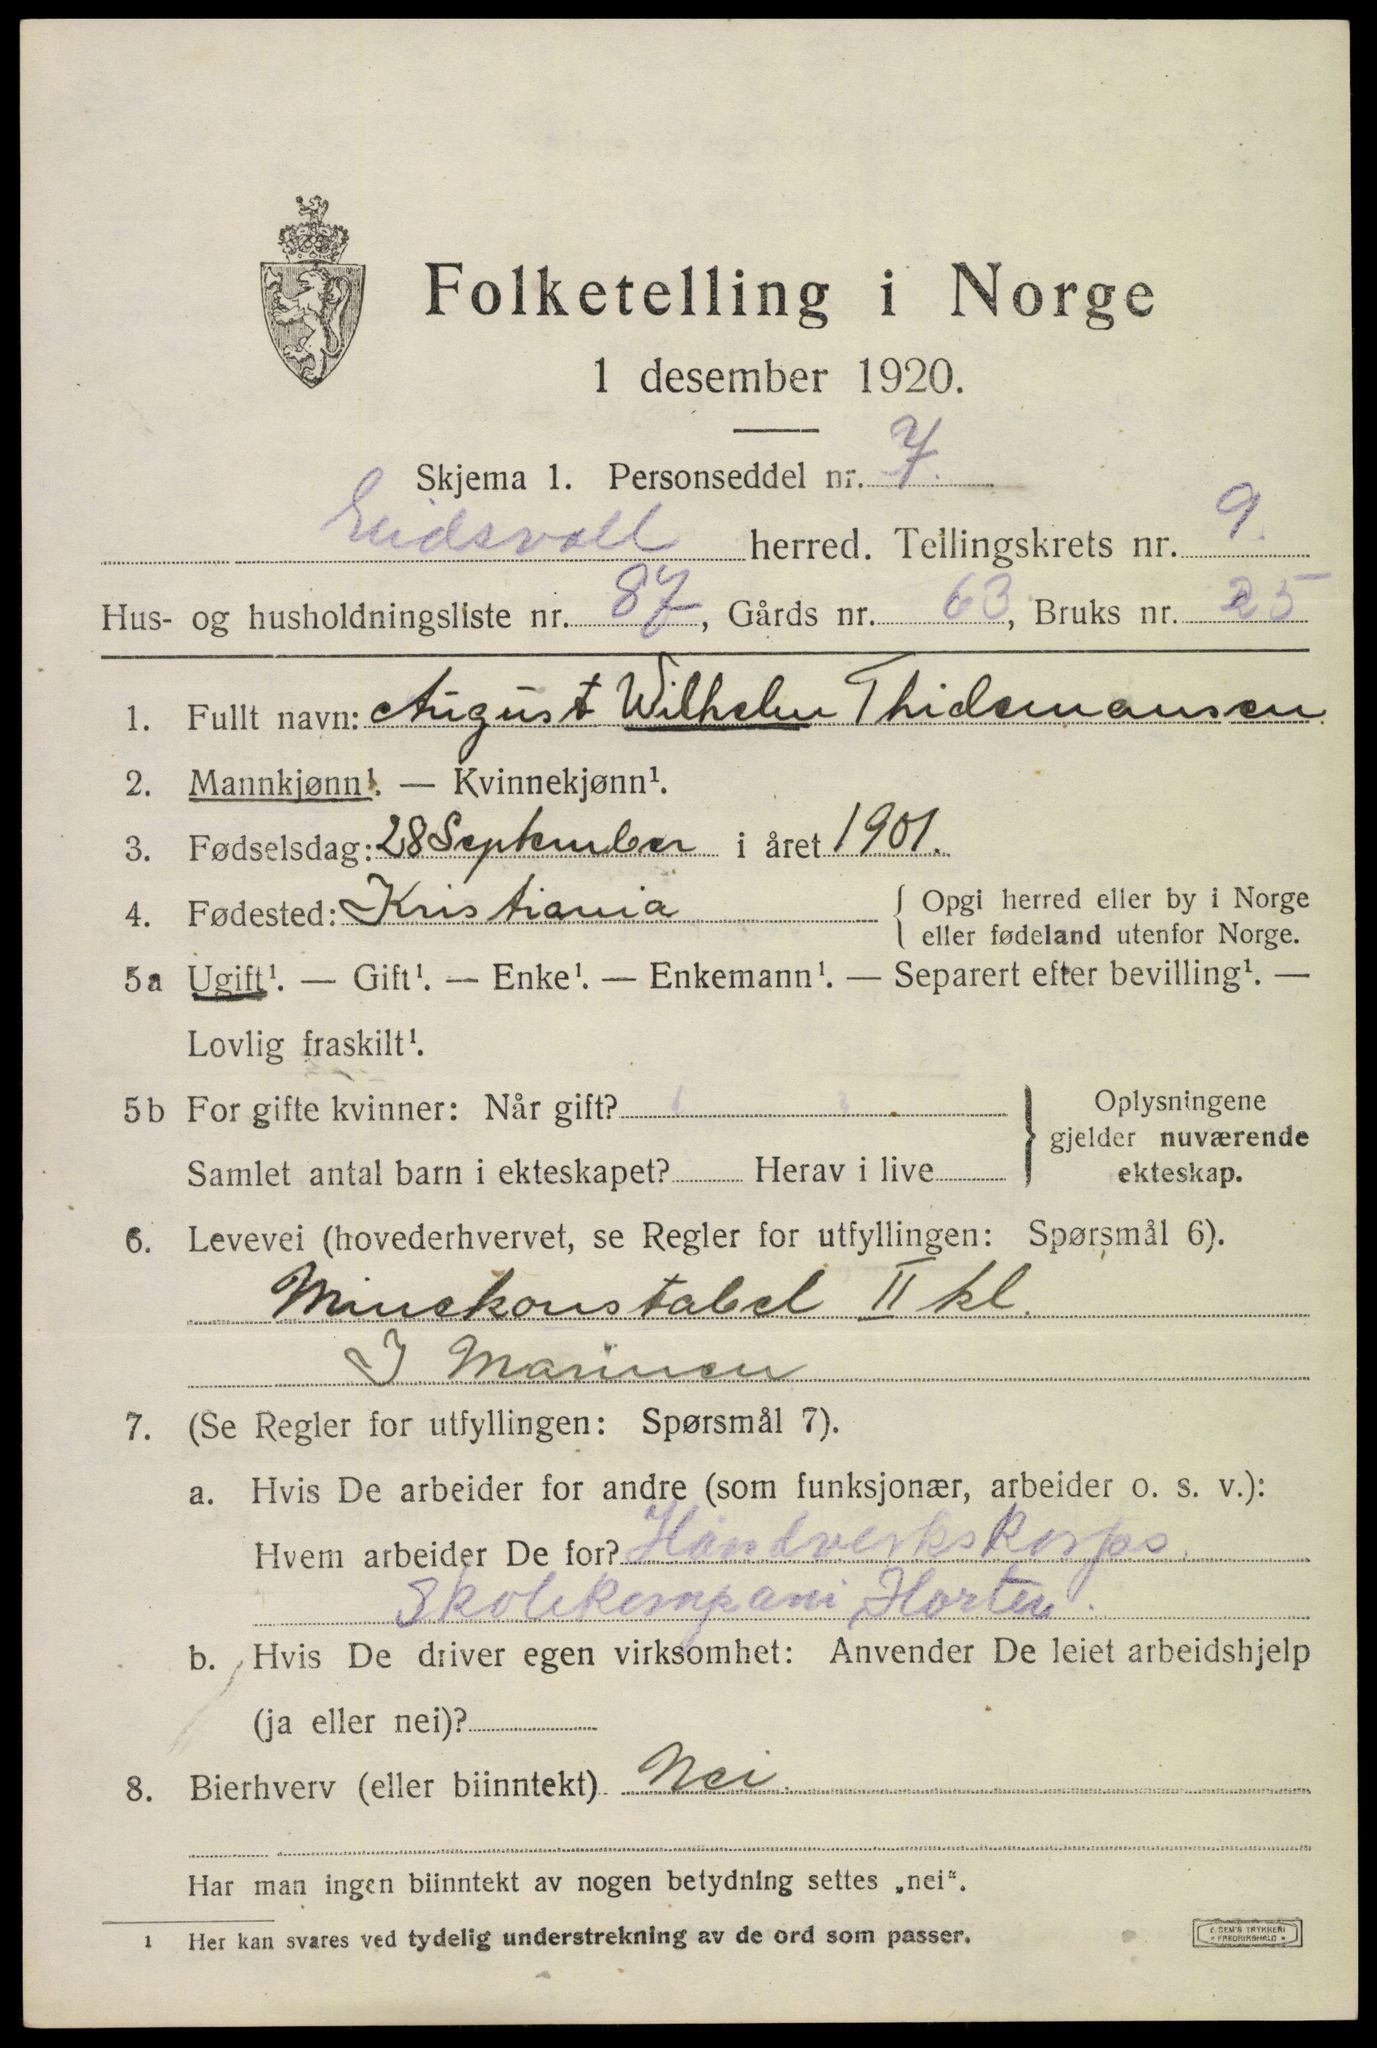 Folketelling i Norge
1 desember 1920.
Skjema 1. Personseddel nr. 7.
Eidsvoll herred. Tellingskrets nr. 9.
Hus- og husholdningsliste nr. 87, Gårds nr. 63, Bruks nr. 25
1. Fullt navn: August Wilhelm Thidemansen
2. Mannkjønn¹. — Kvinnekjønn¹.
3. Fødselsdag: 28 September i året 1901.
4. Fødested: Kristiania { Opgi herred eller by i Norge
eller fødeland utenfor Norge.
5a Ugift¹. — Gift¹. — Enke¹. — Enkemann¹. — Separert efter bevilling¹. —
Lovlig fraskilt¹.
5b For gifte kvinner: Når gift? } Oplysningene
gjelder nuværende
Samlet antal barn i ekteskapet? Herav i live ekteskap.
6. Levevei (hovederhvervet, se Regler for utfyllingen: Spørsmål 6).
Minekonstabel II kl.
I Marinen
7. (Se Regler for utfyllingen: Spørsmål 7).
a. Hvis De arbeider for andre (som funksjonær, arbeider o. s. v.):
Hvem arbeider De for? Håndverkskorps.
Skolekompani, Horten.
b. Hvis De driver egen virksomhet: Anvender De leiet arbeidshjelp
(ja eller nei)?
8. Bierhverv (eller biinntekt) Nei.
Har man ingen biinntekt av nogen betydning settes „nei“.
1 Her kan svares ved tydelig understrekning av de ord som passer.
E. SEM'S TRYKKERI
* FREDRIKSHALD *